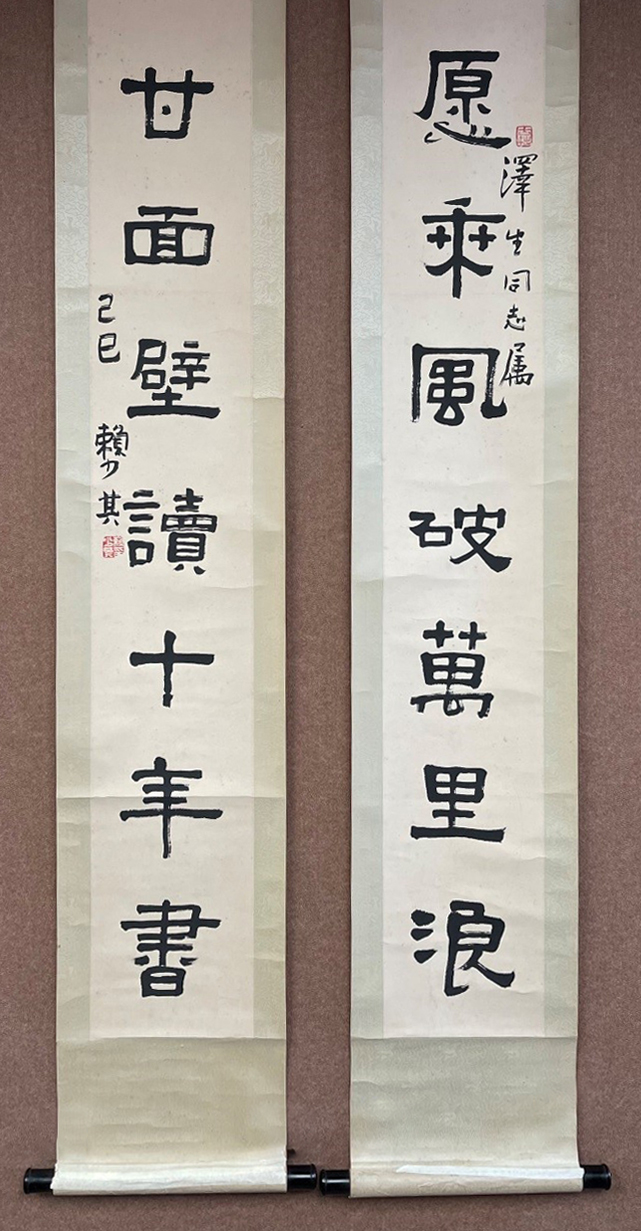 愿乘風破萬里浪
澤生同志属
甘面壁讀十年書
己巳 賴少其